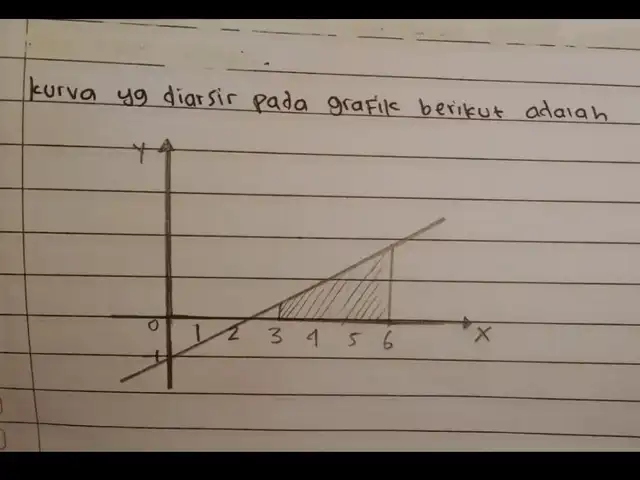 kurva yg diarsir pada grafik berikut adalah
Y
0 1 2 3 4 5 6 X
-1